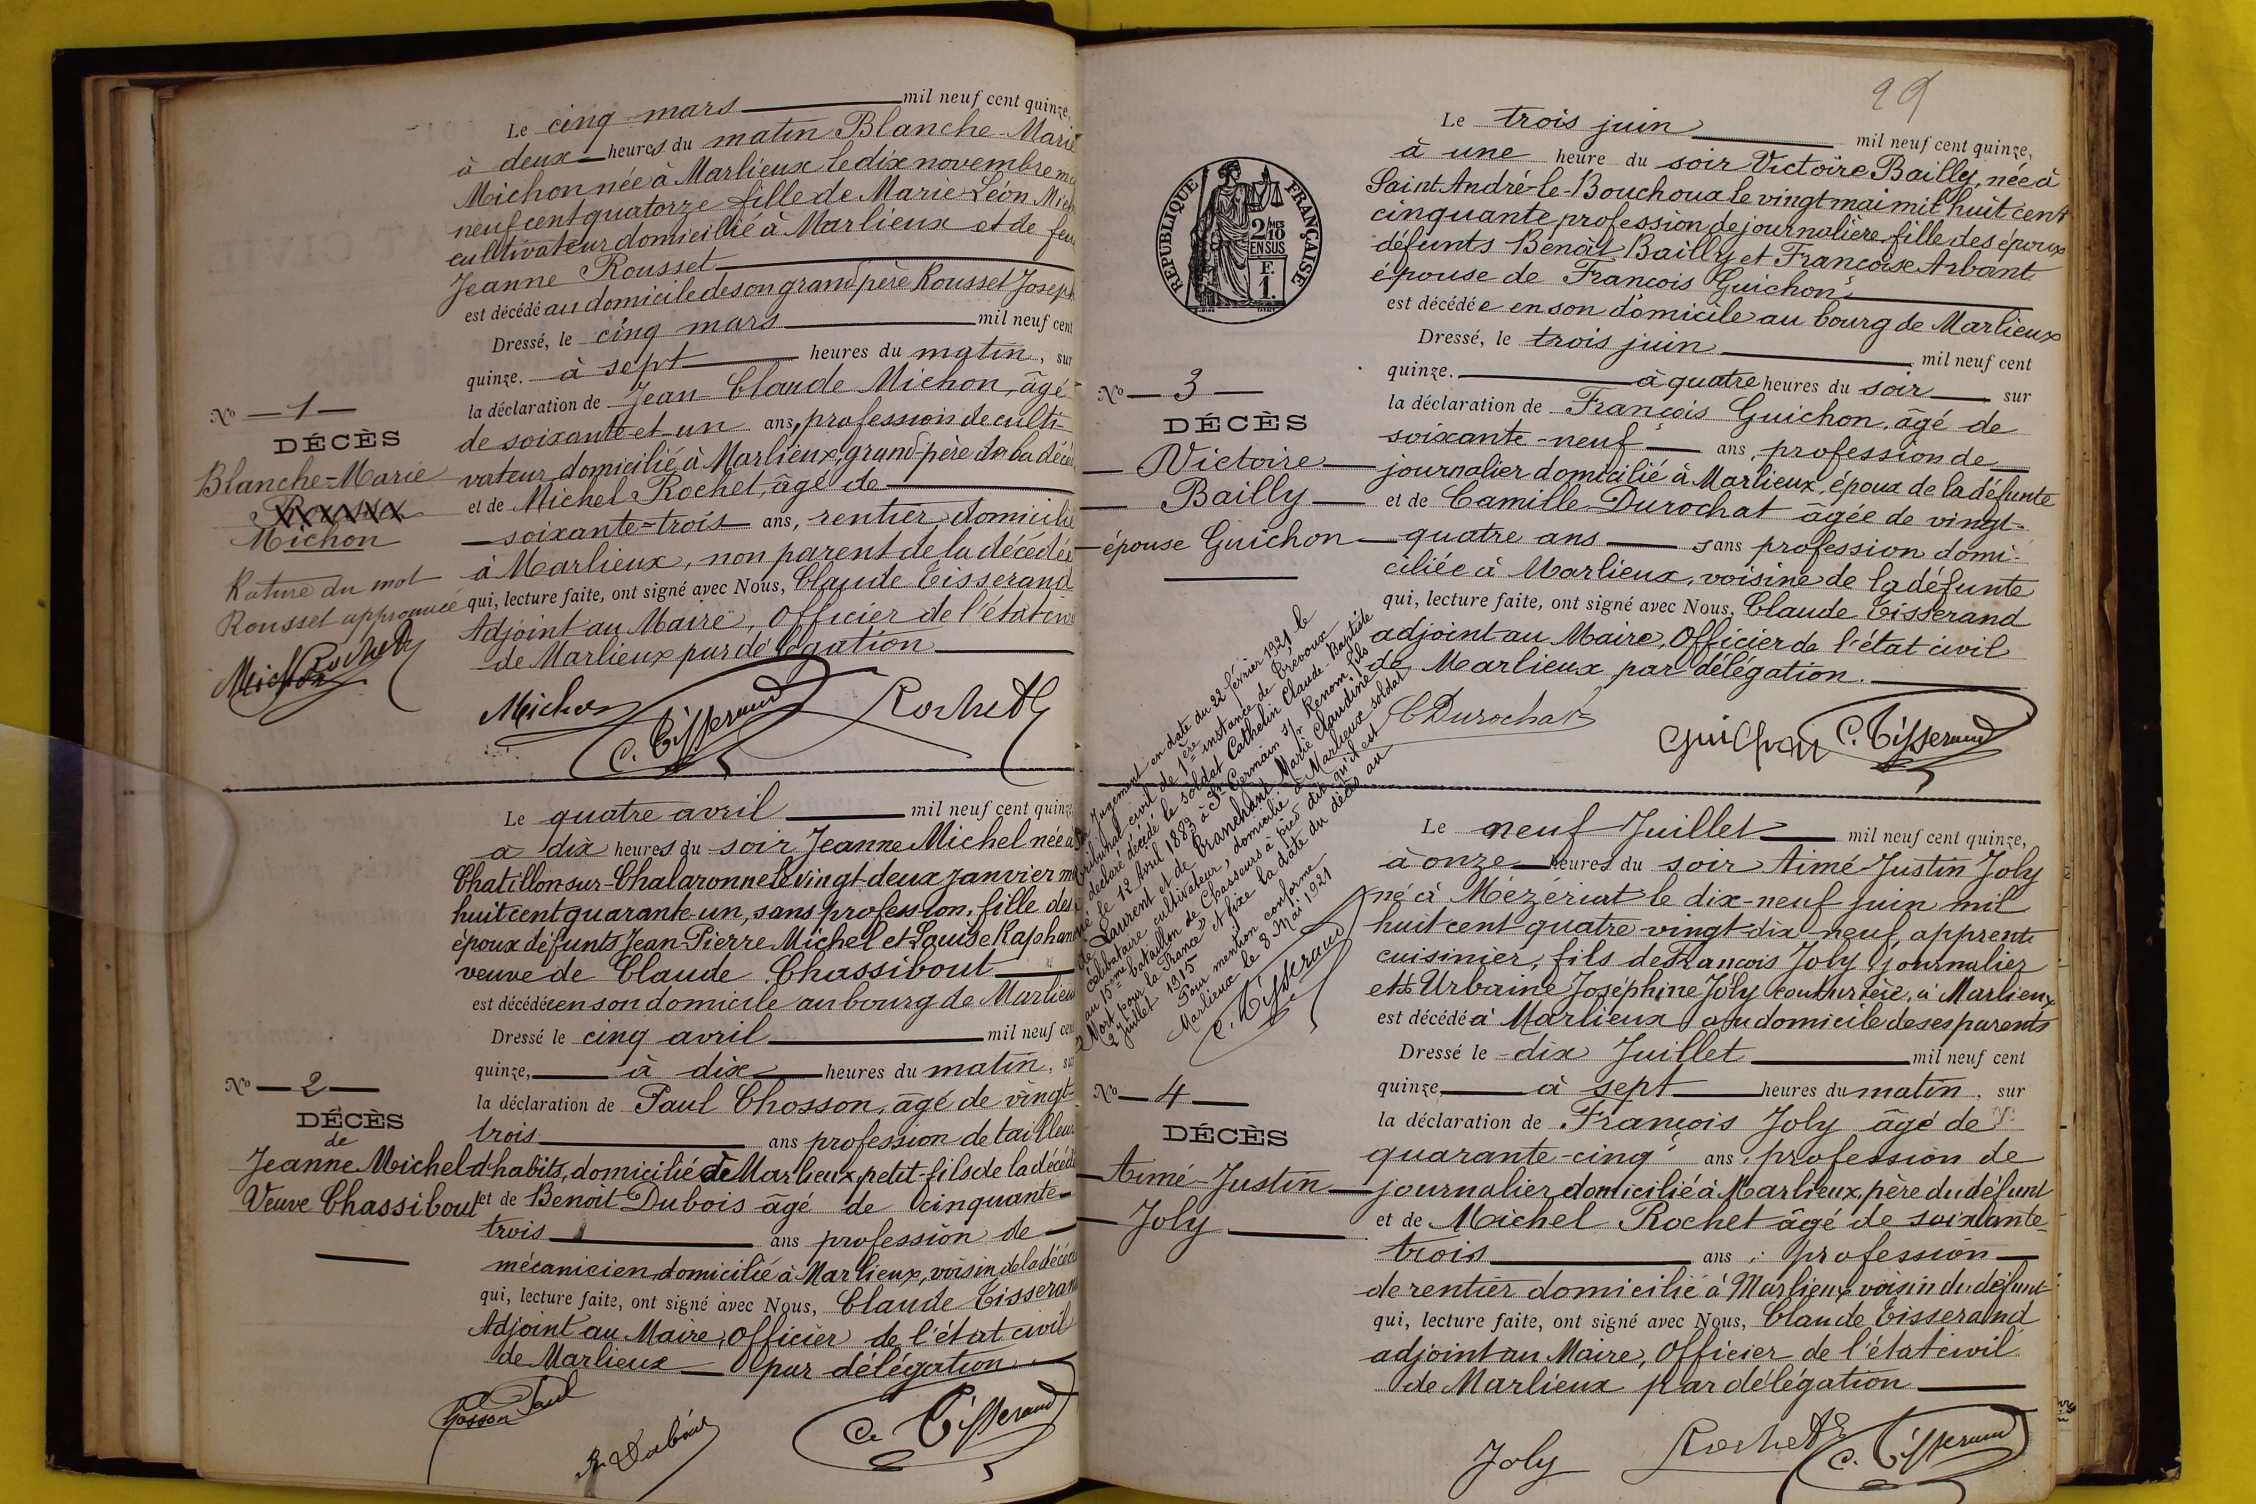 Le cinq mars mil neuf cent quinze,
à deux heures du matin Blanche-Marie
Michon née à Marlieux le dix novembre
neuf cent quatorze fille de Marie-Léon
cultivateur domicilié à Marlieux et de feue
Jeanne Rousset
est décédé au domicile de son grand père Rousset Joseph
Dressé, le cinq mars mil neuf cent
quinze. à sept heures du matin, sur
la déclaration de Jean-Claude Michon, âgé
de soixante-et-un ans, profession de culti-
vateur domicilié à Marlieux, grand-père de la
et de Michel Rochet, âgé de
soixante-trois ans, rentier domicilié
à Marlieux, non parent de la décédée
qui, lecture faite, ont signé avec Nous, Claude Tisserand
Adjoint au Maire, Officier de l'état
de Marlieux par délégation
Michon C. Tisserand Rochet
No 1
DÉCÈS
Blanche-Marie
Michon
Rature du mot
Rousset approuvée
Michon Rochet
Le quatre avril mil neuf cent quinze
a dix heures du soir Jeanne Michel née à
Chatillon-sur-Chalaronne le vingt-deux janvier
huit cent quarante-un, sans profession, fille des
époux défunts Jean-Pierre Michel et Louise
veuve de Claude Chassibout
est décédée en son domicile au bourg de Marlieux
Dressé le cinq avril mil neuf cent
quinze, à dix heures du matin,
la déclaration de Paul Chosson, âgé de vingt-
trois ans profession de tailleur
d'habits, domicilié à Marlieux, petit-fils de la
et de Benoit Dubois âgé de cinquante-
trois ans profession de
mécanicien domicilié à Marlieux, voisin de la
qui, lecture faite, ont signé avec Nous, Claude Tisserand
Adjoint au Maire, Officier de l'état civil
de Marlieux par délégation
Chosson Paul
B. Dubois
C. Tisserand
No 2
DÉCÈS
de
Jeanne Michel
Veuve Chassibout
Le trois juin mil neuf cent quinze,
à une heure du soir Victoire Bailly, née à
Saint André-le-Bouchoux le vingt mai mil huit cent
cinquante, profession de journalière, fille des époux
défunts Benoît Bailly et Françoise Arbant
épouse de François Guichon
est décédée en son domicile au bourg de Marlieux
Dressé, le trois juin mil neuf cent
quinze. à quatre heures du soir sur
la déclaration de François Guichon, âgé de
soixante-neuf ans, profession de
journalier domicilié à Marlieux, époux de la défunte
et de Camille Durochat âgée de vingt-
quatre ans sans profession domi-
ciliée à Marlieux, voisine de la défunte
qui, lecture faite, ont signé avec Nous, Claude Tisserand
adjoint au Maire, Officier de l'état civil
de Marlieux par délégation.
C Durochat
Guichon C. Tisserand
RÉPUBLIQUE FRANÇAISE
2/10 MES
EN SUS
F.
1.
No 3
DÉCÈS
Victoire
Bailly
épouse Guichon
Jugement en date du 22 février 1921 le
tribunal civil de 1ère instance de Trévoux
déclaré décédé le soldat Cathelin Claude-Baptiste
né le 12 Avril 1883 à St Germain s/r Renom, fils
de Laurent et de Branchant Marie Claudine
célibataire cultivateur, domicilié à Marlieux soldat
au 15ème bataillon de Chasseurs à pied dit qu'il est
"Mort pour la France" et fixe la date du décès au
2 juillet 1915
Pour mention conforme
Marlieux le 8 Mai 1921
C. Tisserand
Le neuf Juillet mil neuf cent quinze,
à onze heures du soir Aimé Justin Joly
né à Mézériat le dix-neuf juin mil
huit cent quatre-vingt-dix-neuf, apprenti
cuisinier, fils de François Joly journalier
et de Urbaine Joséphine Joly couturière, à Marlieux
est décédé à Marlieux au domicile de ses parents
Dressé le dix Juillet mil neuf cent
quinze, à sept heures du matin, sur
la déclaration de François Joly âgé de
quarante-cinq ans, profession de
journalier domicilié à Marlieux, père du défunt
et de Michel Rochet âgé de soixante-
trois ans, profession
de rentier domicilié à Marlieux voisin du défunt
qui, lecture faite, ont signé avec Nous, Claude Tisserand
adjoint au Maire, Officier de l'état civil
de Marlieux par délégation
Joly Rochet C. Tisserand
No 4
DÉCÈS
Aimé-Justin
Joly